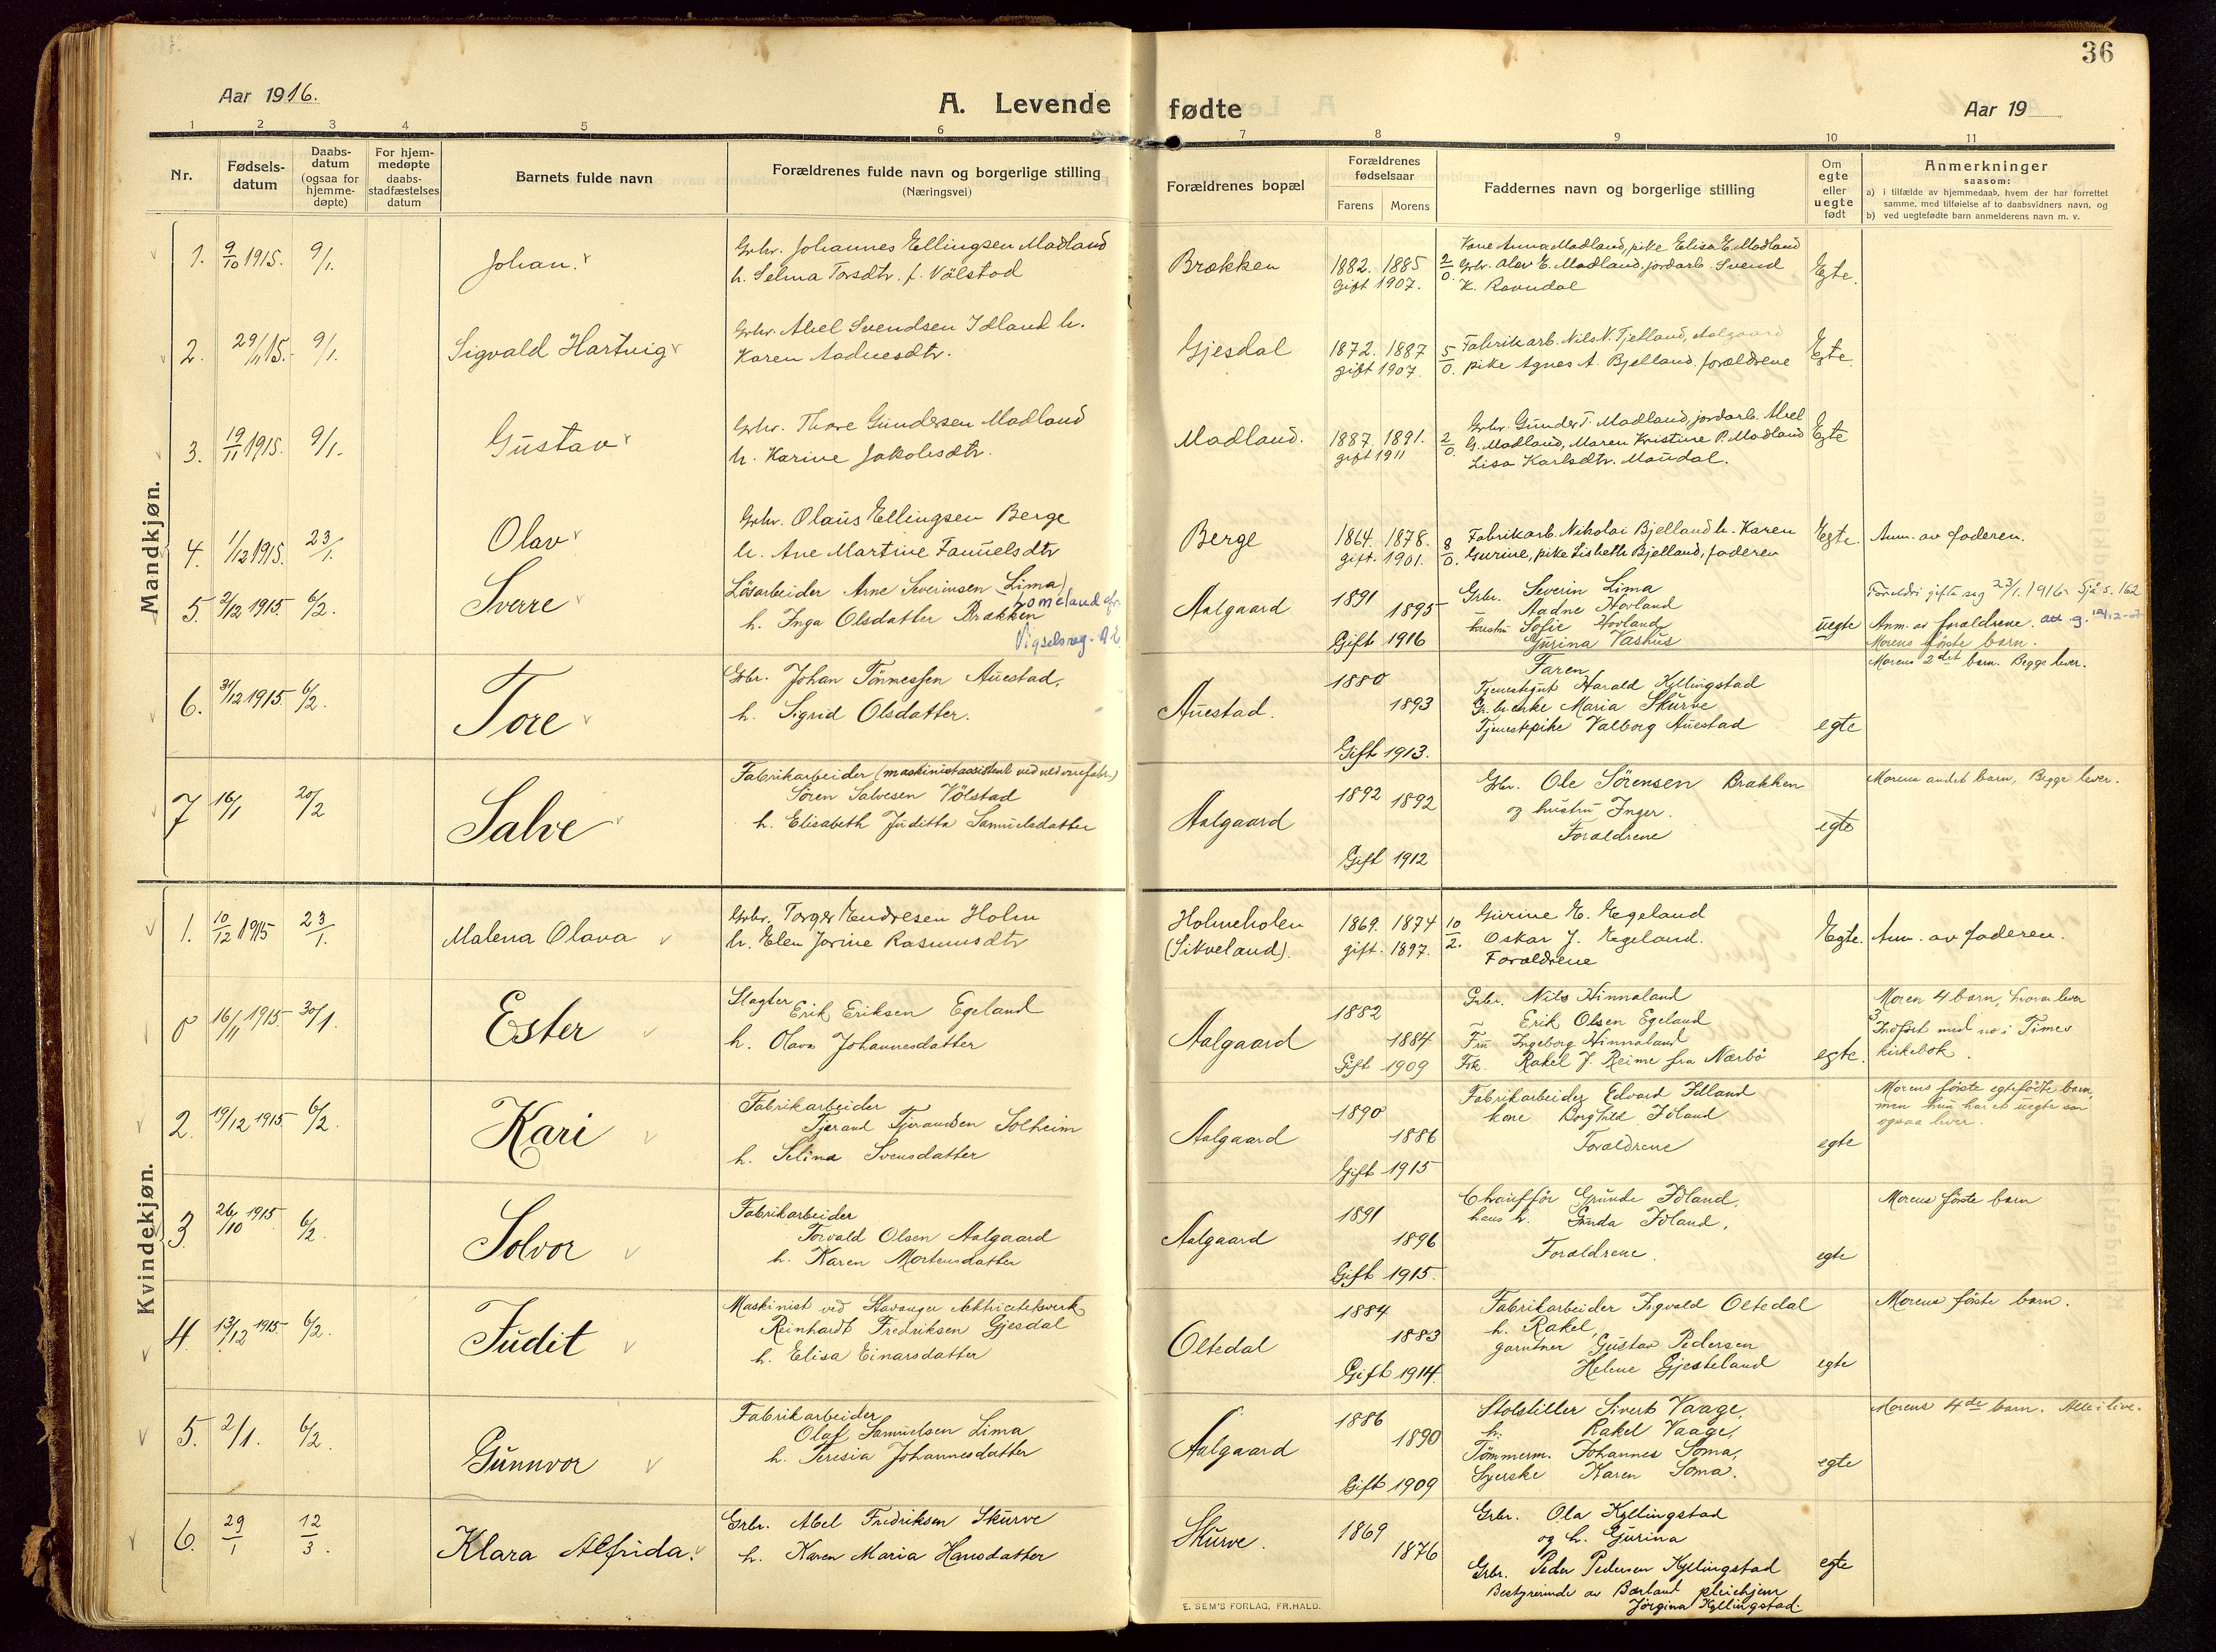 36
Aar 1916.
A. Levende fødte
Aar 19
1 2 3 4 5 6 7 8 9 10 11
Nr.
Fødsels-
datum
Daabs-
datum
(ogsaa for
hjemme-
døpte)
For hjem-
medøpte
daabs-
stadfæstelses
datum
Barnets fulde navn
Forældrenes fulde navn og borgerlige stilling
(Næringsvei)
Forældrenes bopæl
Forældrenes
fødselsaar
Farens Morens
Faddernes navn og borgerlige stilling
Om
egte
eller
uegte
født
Anmerkninger
saasom:
a) i tilfælde av hjemmedaab, hvem der har forrettet
samme, med tilføielse af to daabsvidners navn, og
b) ved uegtefødte barn anmelderens navn m. v.
Mandkjøn.
1. 9/10 1915. 9/1. Johan.
Grbr. Johannes Ellingsen Madland
h. Selma Torsdtr. f. Völstad
Brækken
1882. 1885
Gift 1907.
2/0
Kone Anna Madland, pike Elisa E. Madland
Grbr. Olav E. Madland, jordarb. Svend
K. Ravndal
Egte.
2. 29/11 15. 9/1. Sigvald Hartvig
Grbr. Abel Svendsen Idland h.
Karen Aadnesdtr.
Gjesdal
1872. 1887
gift 1907.
5/0.
Fabrikarb. Nils N. Fjetland, Aalgaard
pike Agnes A. Bjelland, forældrene
Egte.
3. 19/11 1915. 9/1. Gustav
Grbr. Thore Gundersen Madland
h. Karine Jakobsdtr.
Madland.
1887. 1891.
gift 1911
2/0.
Grbr. Gunder T. Madland, jordarb. Abel
G. Madland, Maren Kristine P. Madland
Lisa Karlsdtr. Maudal.
Egte
4. 1/12 1915. 23/1. Olav
Grbr. Olaus Ellingsen Berge
h. Ane Martine Famuelsdtr
Berge
1864. 1878.
gift. 1901.
8/0.
Fabrikarb. Nikolai Bjelland h. Karen
Gurine, pike Lisbeth Bjelland, faderen
Egte.
Anm. av faderen.
5. 2/12 1915. 6/2. Sverre
Lösarbeider Arne Severinsen Lima
h. Inga Olsdatter Brækken
Vigselsreg.
Aalgaard
1891
1895
Gift 1916
Grbr. Severin Lima
Aadne Hovland
hustru Sofie Hovland
Gurina Vashus
uegte
Foreldri gifte seg 23/1. 1916. Sjå s. 162
Anm. av forældrene.
Morens første barn.
6. 31/12 1915. 6/2. Tore
Gbr. Johan Tönnessen Auestad,
h. Sigrid Olsdatter.
Auestad.
1880
1893
Gift 1913.
Faren
Tjenestegut Harald Kyllingstad
Gr.br.enke Maria Skurve
Tjenestepike Valborg Auestad
egte
Morens 2det barn. Begge lever.
7 16/1 20/2 Salve
Fabrikarbeider (maskinistassistent ved
Sören Salvesen Völstad
h. Elisabeth Juditta Samuelsdatter
Aalgaard
1892 1892
Gift 1912
Gbr. Ole Sörensen Brækken
og hustru Inger.
Forældrene
egte
Morens andet barn, Begge lever.
Kvindekjøn.
1. 10/12 1915 23/1. Malena Olava
Grbr. Torger Endresen Holm
h. Elen Jorine Rasmusdtr
Holmeholen
(Sikveland).
1869. 1874
gift. 1897.
10/2.
Gurine E. Egeland
Oskar J. Egeland.
Forældrene
Egte.
Anm. av faderen.
0 16/11 1915. 30/1. Ester
Slagter
Erik Eriksen Egeland
h. Olava Johannesdatter
Aalgaard
1882
1884
Gift 1909
Grbr. Nils Hinnaland
Erik Olsen Egeland
Fru Ingeborg Hinnaland
Frk. Rakel J. Reime fra Nærbö
egte.
Moren 4 barn, hvorav lever
3
Indfört med no i Times
kirkebok.
2. 19/12 1915 6/2. Kari
Fabrikarbeider
Tjerand Tjerandsen Solheim
h. Selina Svensdatter
Aalgaard
1890
1886
Gift 1915
Fabrikarbeider Edvard Idland
kone Borghild Idland
Forældrene
egte
Morens første egtefödte barn,
men hun har et uegte som
ogsaa lever.
3 26/10 1915 6/2. Solvor
Fabrikarbeider
Torvald Olsen Aalgaard
h. Karen Mortensdatter
Aalgaard
1891
1896
Gift 1915.
Chauffør Gunde Idland,
hans h. Gunda Idland,
Forældrene.
egte
Morens første barn
4. 13/12 1915. 6/2. Judit
Maskinist ved Stavanger elektricitetsverk
Reinhardt Fredriksen Gjesdal
h. Elisa Einarsdatter
Oltedal
1884
1883
Gift 1914.
Fabrikarbeider Ingvald Oltedal
h. Rakel,
gartner Gustav Pedersen
Helene Gjesteland
egte
Morens første barn.
5. 2/1. 6/2. Gunnvor
Fabrikarbeider
Olaf Samuelsen Lima
h. Teresia Johannesdatter
Aalgaard
1886
1890
Gift 1909
Stolstiller Sivert Vaage,
h. Rakel Vaage,
Tömmerm. Johannes Soma,
Syerske Karen Soma.
egte
Morens 4de barn. Alle i live.
6. 29/1 12/3. Klara Alfrida.
Grbr. Abel Fredriksen Skurve
h. Karen Maria Hansdatter
Skurve.
1869
1876
Grbr. Ola Kyllingstad
og h. Gurina
Grbr. Peder Pedersen Kyllingstad
Bestyrerinde av Børland pleiehjem
Jørgina Kyllingstad.
egte
E. SEM'S FORLAG, FR.HALD.